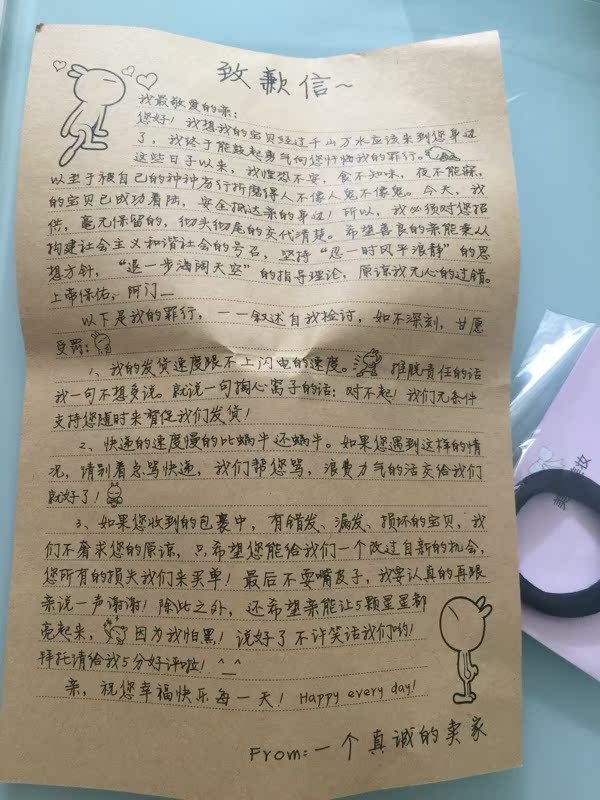 致歉信~
我最敬爱的亲：
您好！我想我的宝贝经过千山万水应该来到您身边
了，我终于能鼓起勇气向您忏悔我的罪行。
这些日子以来，我惶恐不安，食不知味，夜不能寐，
以至于被自己的种种劣行折磨得人不像人鬼不像鬼。今天，我
的宝贝已成功着陆，安全抵达亲的身边！所以，我必须对您招
供，毫无保留的，彻头彻尾的交代清楚。希望善良的亲能秉从
构建社会主义和谐社会的号召，坚持“忍一时风平浪静”的思
想方针，“退一步海阔天空”的指导理论，原谅我无心的过错。
上帝保佑，阿门__
以下是我的罪行，一一叙述自我检讨，如不深刻，甘愿
受罚：
1、我的发货速度跟不上闪电的速度。推脱责任的话
我一句不想多说。就说一句掏心窝子的话：对不起！我们无条件
支持您随时来督促我们发货！
2、快递的速度慢的比蜗牛还蜗牛。如果您遇到这样的情
况，请别着急骂快递，我们帮您骂，浪费力气的活交给我们
就好了！
3、如果您收到的包裹中，有错发、漏发、损坏的宝贝，我
们不奢求您的原谅，只希望您能给我们一个改过自新的机会，
您所有的损失我们来买单！最后不耍嘴皮子，我要认真的再跟
亲说一声谢谢！除此之外，还希望亲能让5颗星星都
亮起来，因为我怕黑！说好了不许笑话我们哟！
拜托请给我5分好评啦！^_^
亲，祝您幸福快乐每一天！Happy every day!
From:一个真诚的卖家